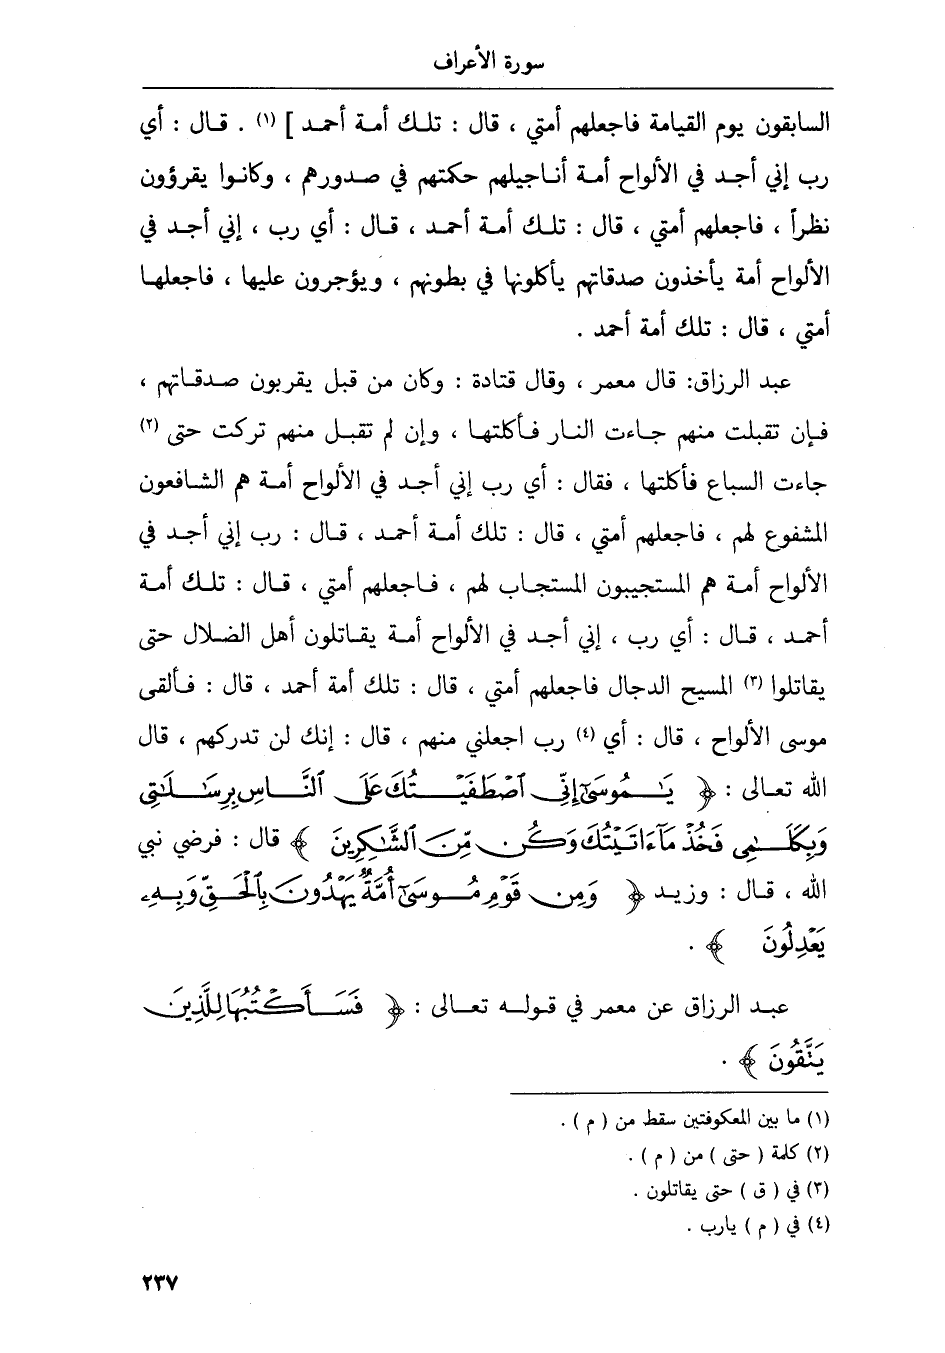 سورة الأعراف
السابقون يوم القيامة فاجعلهم أمتي ، قال : تلك أمة أحمد ] (١) . قال : أي
رب إني أجد في الألواح أمة أناجيلهم حكمتهم في صدورهم ، وكانوا يقرؤون
نظراً ، فاجعلهم أمتي ، قال : تلك أمة أحمد ، قال : أي رب ، إني أجد في
الألواح أمة يأخذون صدقاتهم يأكلونها في بطونهم ، ويؤجرون عليها ، فاجعلها
أمتي ، قال : تلك أمة أحمد .
عبد الرزاق: قال معمر ، وقال قتادة : وكان من قبل يقربون صدقاتهم ،
فإن تقبلت منهم جاءت النار فأكلتها ، وإن لم تقبل منهم تركت حتى (٢)
جاءت السباع فأكلتها ، فقال : أي رب إني أجد في الألواح أمة هم الشافعون
المشفوع لهم ، فاجعلهم أمتي ، قال : تلك أمة أحمد ، قال : رب إني أجد في
الألواح أمة هم المستجيبون المستجاب لهم ، فاجعلهم أمتي ، قال : تلك أمة
أحمد ، قال : أي رب ، إني أجد في الألواح أمة يقاتلون أهل الضلال حتى
يقاتلوا (٣) المسيح الدجال فاجعلهم أمتي ، قال : تلك أمة أحمد ، قال : فألقى
موسى الألواح ، قال : أي (٤) رب اجعلني منهم ، قال : إنك لن تدركهم ، قال
الله تعالى : ﴿ يَـٰمُوسَىٰٓ إِنِّى ٱصْطَفَيْتُكَ عَلَى ٱلنَّاسِ بِرِسَـٰلَـٰتِى
وَبِكَلَـٰمِى فَخُذْ مَآ ءَاتَيْتُكَ وَكُن مِّنَ ٱلشَّـٰكِرِينَ ﴾ قال : فرضي نبي
الله ، قال : وزيد ﴿ وَمِن قَوْمِ مُوسَىٰٓ أُمَّةٌ يَهْدُونَ بِٱلْحَقِّ وَبِهِۦ
يَعْدِلُونَ ﴾ .
عبد الرزاق عن معمر في قوله تعالى : ﴿ فَسَأَكْتُبُهَا لِلَّذِينَ
يَتَّقُونَ ﴾ .
(١) ما بين المعكوفتين سقط من ( م ) .
(٢) كلمة ( حتى ) من ( م ) .
(٣) في ( ق ) حتى يقاتلون .
(٤) في ( م ) يارب .
٢٣٧